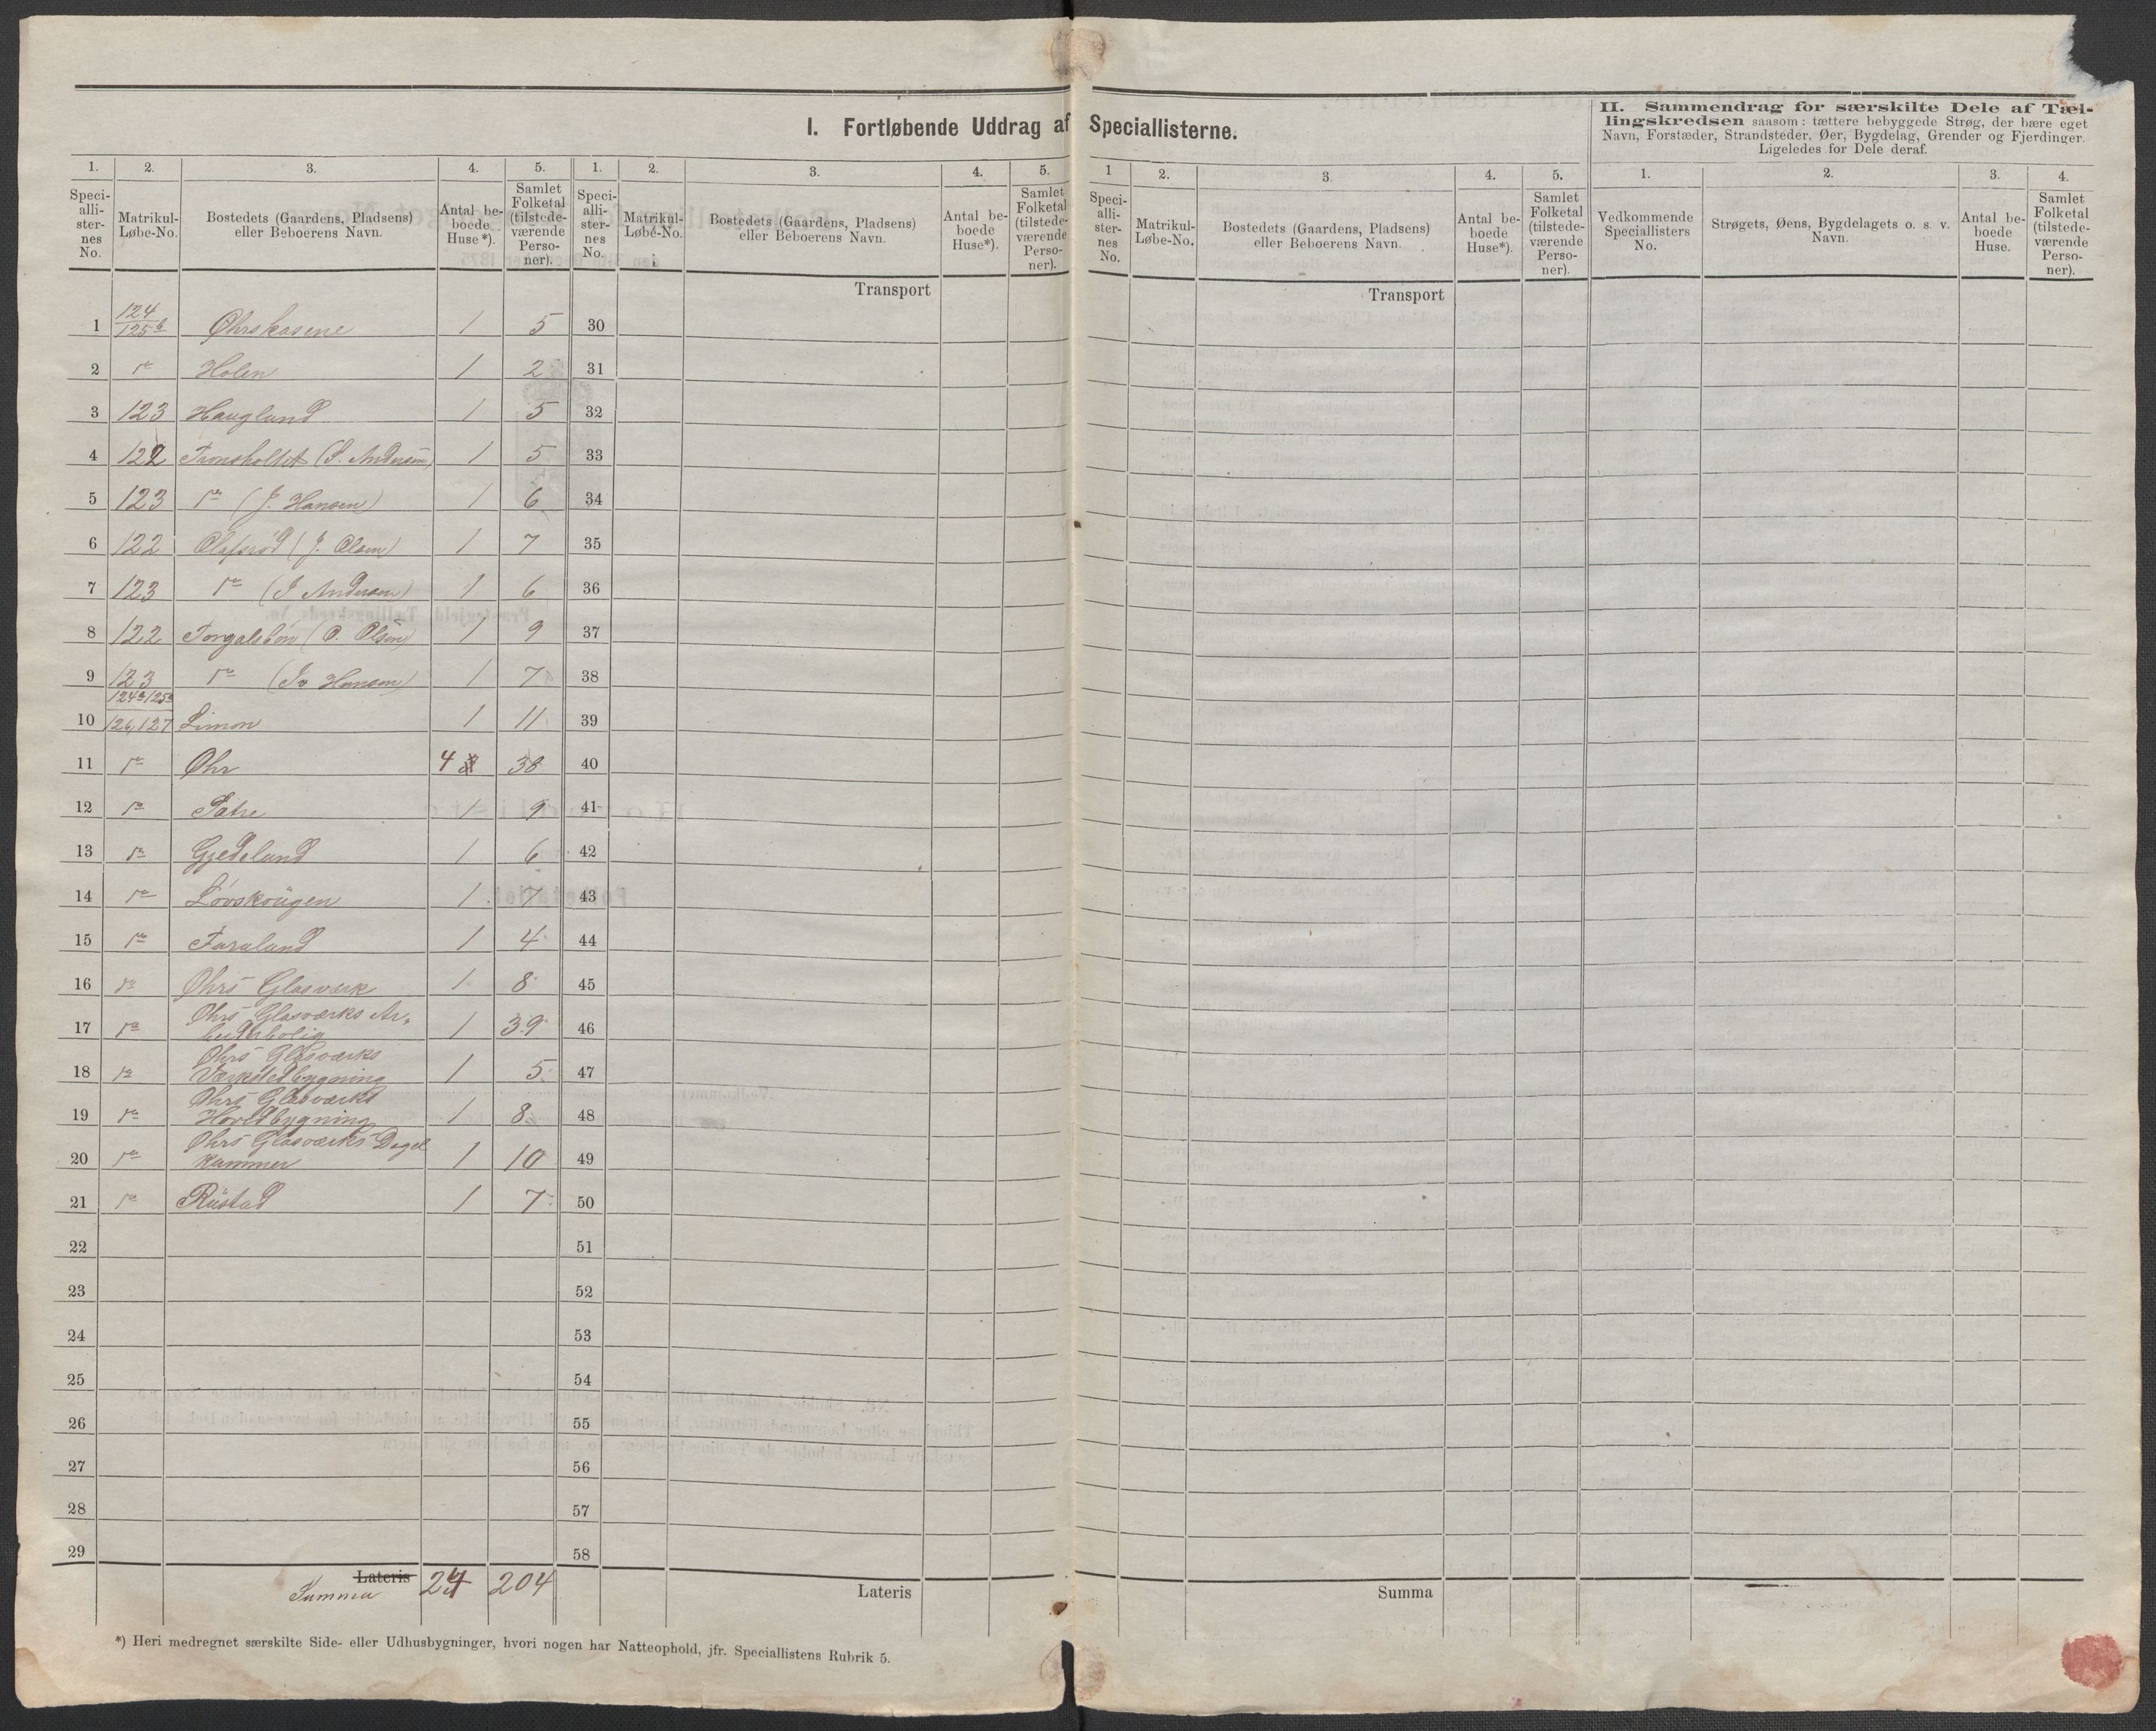 I. Fortløbende Uddrag af Speciallisterne.
II. Sammendrag for særskilte Dele af Tæl-
lingskredsen saasom: tættere bebyggede Strøg, der bære eget
Navn, Forstæder, Strandsteder, Øer, Bygdelag, Grender og Fjerdinger.
Ligeledes for Dele deraf.
1. 2. 3. 4. 5. 1. 2. 3. 4. 5. 1 2. 3. 4. 5. 1. 2. 3. 4.
Speci-alli-ster-nes No. Matrikul-Løbe-No. Bostedets (Gaardens, Pladsens) eller Beboerens Navn. Antal be-boede Huse*). Samlet Folketal (tilstede-værende Perso-ner).
Speci-alli-ster-nes No. Matrikul-Løbe-No. Bostedets (Gaardens, Pladsens) eller Beboerens Navn. Antal be-boede Huse*). Samlet Folketal (tilstede-værende Perso-ner).
Speci-alli-ster-nes No. Matrikul-Løbe-No. Bostedets (Gaardens, Pladsens) eller Beboerens Navn. Antal be-boede Huse*). Samlet Folketal (tilstede-værende Perso-ner).
Vedkommende Speciallisters No. Strøgets, Øens, Bygdelagets o. s. v. Navn. Antal be-boede Huse. Samlet Folketal (tilstede-værende Perso-ner).
Transport Transport
1 124/125b Øhrskasene 1 5 30
2 do Holen 1 2 31
3 123 Hauglund 1 5 32
4 122 Tronsholtet (S. Andersen) 1 5 33
5 123 do (J. Hansen) 1 6 34
6 122 Olafsrød (J. Olsen) 1 7 35
7 123 do (J Andersen) 1 6 36
8 122 Torgalsbøn (O. Olsen) 1 9 37
9 123 do (Hansen) 1 7 38
10 124a 125a 126,127 Limon 1 11 39
11 do Øhr 4 38 40
12 do Sætre 1 9 41
13 do Gjedelund 1 6 42
14 do Løvskougen 1 7 43
15 do Furulund 1 4 44
16 do Øhrs Glasværk 1 8 45
17 do Øhrs Glasværks Ar-
beiderbolig 1 39 46
18 do Øhrs Glasværks
Værkstedbygning 1 5 47
19 do Øhrs Glasværks
Hovedbygning 1 8 48
20 do Øhrs Glasværks Degel
kammer 1 10 49
21 do Rustad 1 7 50
22 51
23 52
24 53
25 54
26 55
27 56
28 57
29 58
Lateris
Summa 24 204 Lateris Summa
*) Heri medregnet særskilte Side- eller Udhusbygninger, hvori nogen har Natteophold, jfr. Speciallistens Rubrik 5.